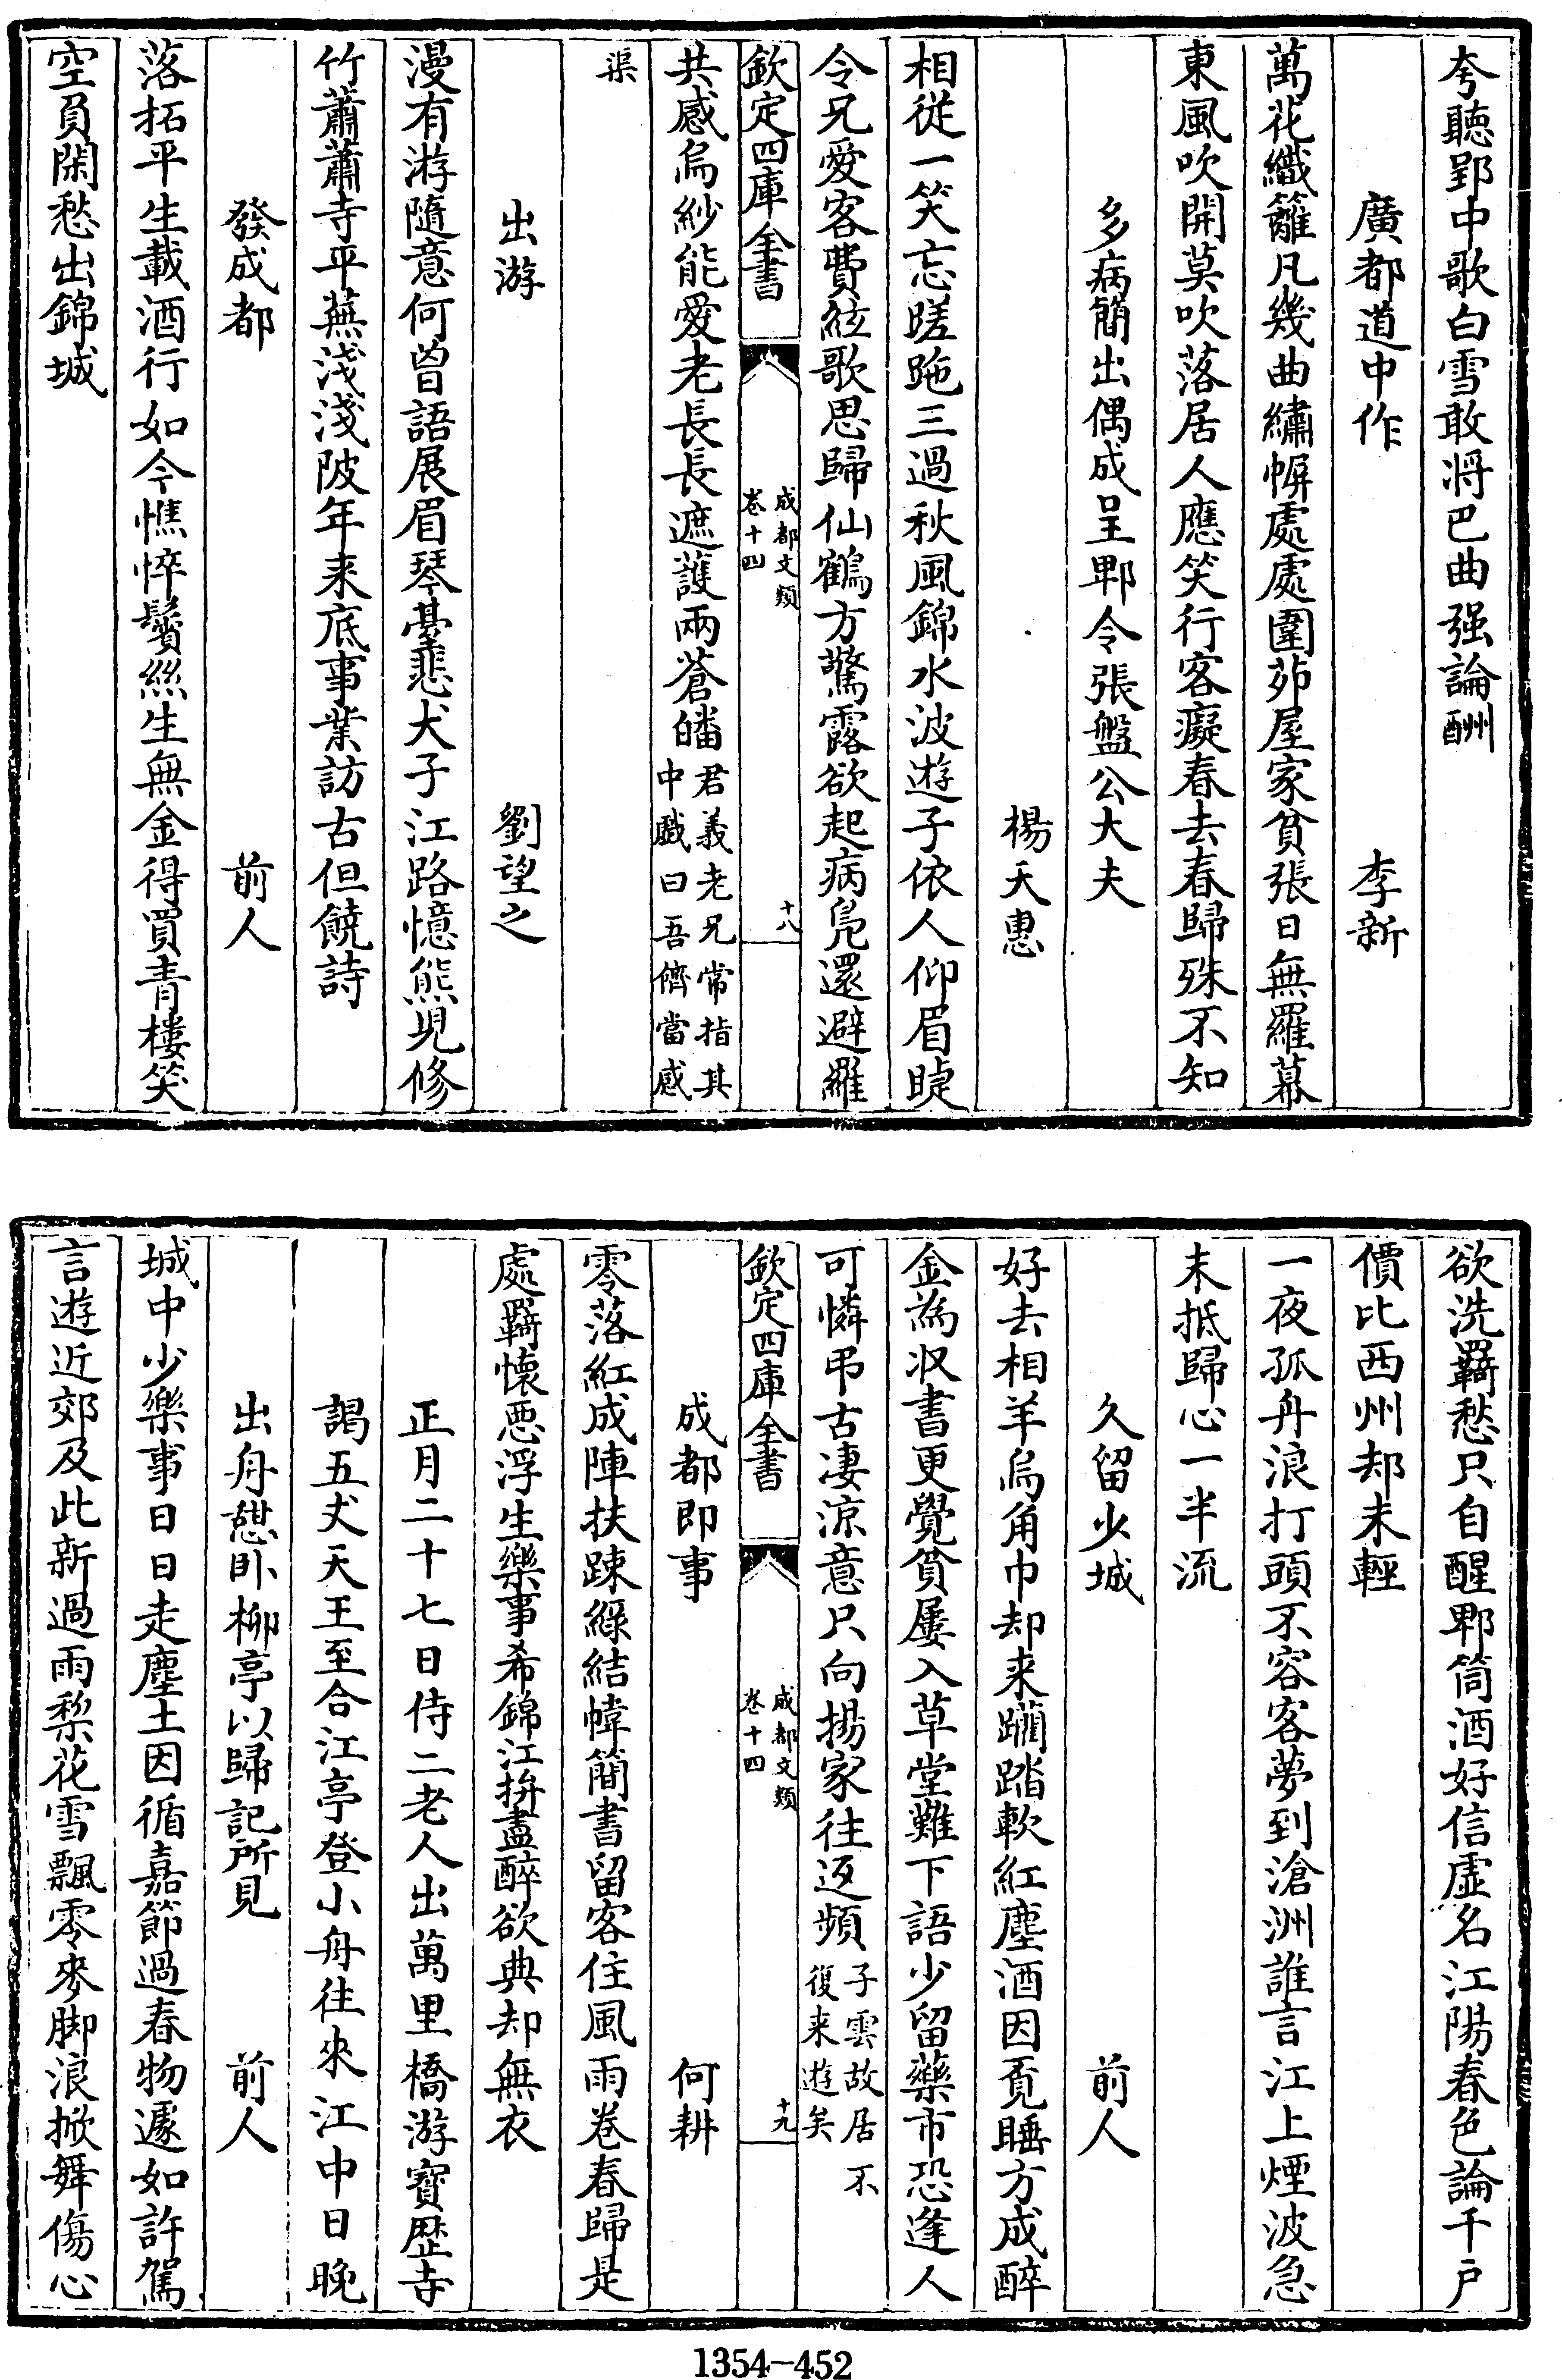 夸聽郢中歌白雪敢將巴曲强論酬
廣都道中作 李新
萬花織籬凡幾曲繡㡡處處圍茆屋家貧張日無羅幕
東風吹開莫吹落居人應笑行客癡春去春歸殊不知
多病簡出偶成呈郫令張盤公大夫
楊天惠
相從一笑忘蹉跎三過秋風錦水波遊子依人仰眉睫
令兄愛客費絃歌思歸仙鶴方驚露欲起病鳬還避羅
欽定四庫全書
成都文類
卷十四
十八
共感烏紗能愛老長長遮護兩蒼皤君義老兄常指其
中戲曰吾儕當感
渠
出游 劉望之
漫有游隨意何曾語展眉琴臺悲犬子江路憶熊児修
竹蕭蕭寺平蕪淺淺陂年来底事業訪古但饒詩
發成都 前人
落拓平生載酒行如今憔悴鬢絲生無金得買青樓笑
空負閑愁出錦城
欲洗羇愁只自醒郫筒酒好信虚名江陽春色論千戶
價比西州却未輕
一夜孤舟浪打頭不容客夢到滄洲誰言江上煙波急
末抵歸心一半流
久留少城 前人
好去相羊烏角巾却来躪踏軟紅塵酒因覓睡方成醉
金為收書更覺貧屢入草堂難下語少留藥市恐逢人
可憐弔古凄涼意只向揚家往返頻子雲故居不
復来遊矣
欽定四庫全書
成都文類
卷十四
十九
成都即事 何耕
零落紅成陣扶踈綠結幃簡書留客住風雨卷春歸是
處羇懷惡浮生樂事希錦江拚盡醉欲典却無衣
正月二十七日侍二老人出萬里橋游寶歴寺
謁五丈天王至合江亭登小舟往來江中日晚
出舟憇卧柳亭以歸記所見 前人
城中少樂事日日走塵土因循嘉節過春物遽如許駕
言遊近郊及此新過雨棃花雪飄零麥脚浪掀舞傷心
1354-452